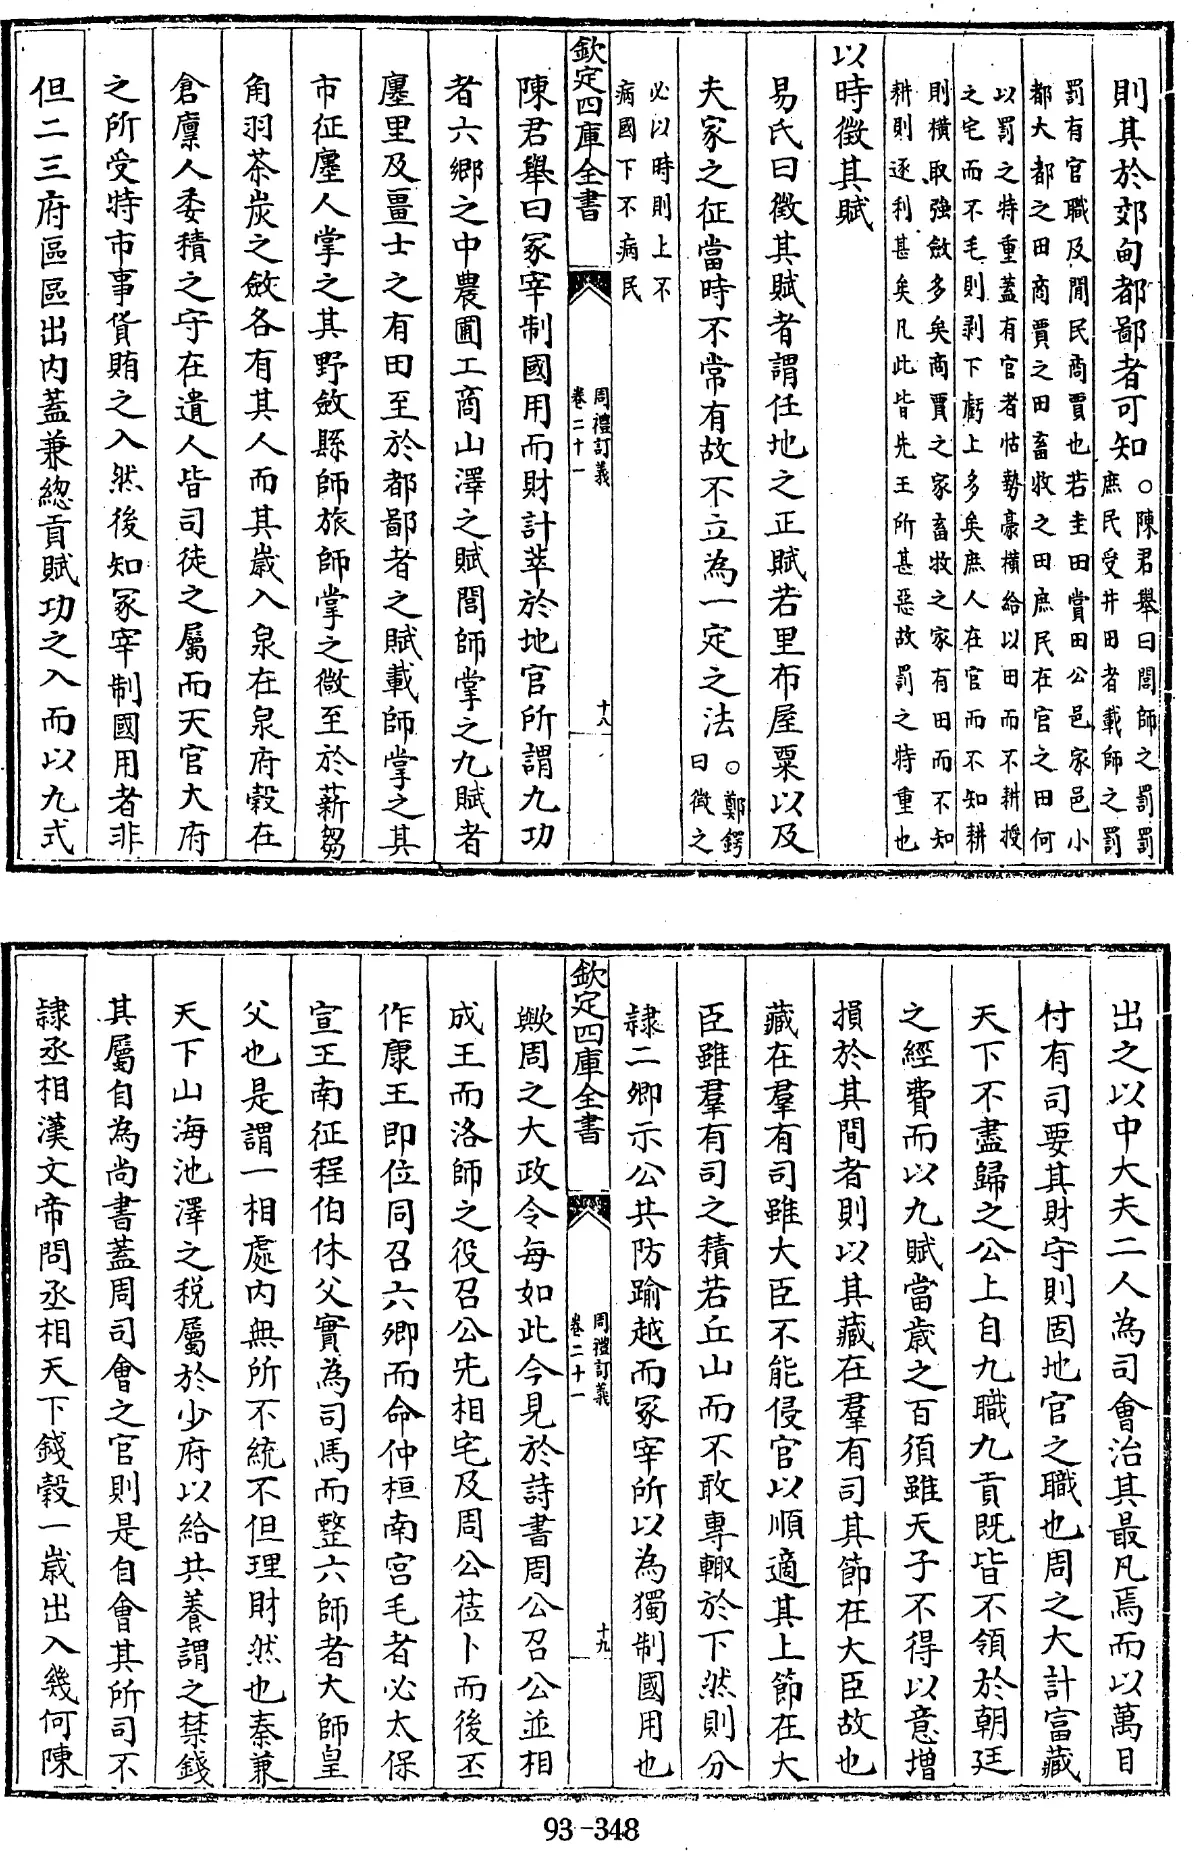 則其於郊甸都鄙者可知○陳君舉曰閭師之罰罰
庶民受井田者載師之罰
罰有官職及閒民商賈也若圭田賞田公邑家邑小
都大都之田商賈之田畜牧之田庶民在官之田何
以罰之特重蓋有官者怙勢豪横給以田而不耕授
之宅而不毛則剥下虧上多矣庶人在官而不知耕
則横取強斂多矣商賈之家畜牧之家有田而不知
耕則逐利甚矣凡此皆先王所甚惡故罰之特重也
以時徵其賦
易氏曰徵其賦者謂任地之正賦若里布屋粟以及
夫家之征當時不常有故不立為一定之法○鄭鍔
曰徵之
必以時則上不
病國下不病民
欽定四庫全書
周禮訂義
卷二十一
十八
陳君舉曰冢宰制國用而財計萃於地官所謂九功
者六鄉之中農圃工商山澤之賦閭師掌之九賦者
廛里及畺士之有田至於都鄙者之賦載師掌之其
市征廛人掌之其野斂縣師旅師掌之微至於薪芻
角羽荼炭之斂各有其人而其歲入泉在泉府穀在
倉廩人委積之守在遺人皆司徒之屬而天官大府
之所受特市事貨賄之入然後知冢宰制國用者非
但二三府區區出内蓋兼緫貢賦功之入而以九式
出之以中大夫二人為司會治其最凡焉而以萬目
付有司要其財守則固地官之職也周之大計富藏
天下不盡歸之公上自九職九貢既皆不領於朝廷
之經費而以九賦當歲之百須雖天子不得以意増
損於其間者則以其藏在羣有司其節在大臣故也
藏在羣有司雖大臣不能侵官以順適其上節在大
臣雖羣有司之積若丘山而不敢專輙於下然則分
隷二卿示公共防踰越而冢宰所以為獨制國用也
欽定四庫全書
周禮訂義
卷二十一
十九
歟周之大政令每如此今見於詩書周公召公並相
成王而洛師之役召公先相宅及周公莅卜而後丕
作康王即位同召六卿而命仲桓南宫毛者必太保
宣王南征程伯休父實為司馬而整六師者大師皇
父也是謂一相處内無所不統不但理財然也秦兼
天下山海池澤之税屬於少府以給共養謂之禁錢
其屬自為尚書蓋周司會之官則是自會其所司不
隷丞相漢文帝問丞相天下錢穀一歲出入幾何陳
93-348